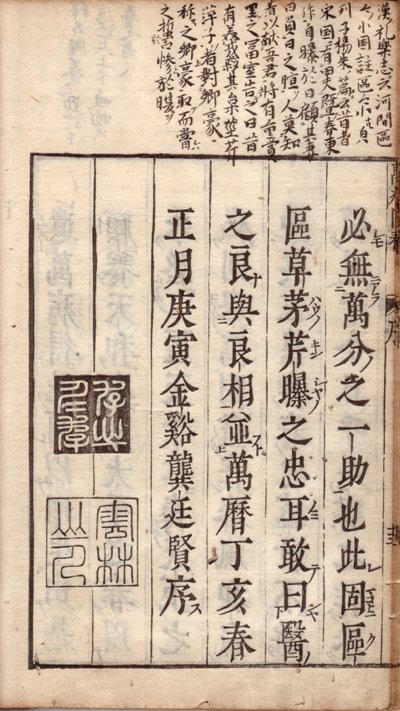 漢礼樂志云河間區
々小國註區々小皃
列子楊朱篇云昔者
宋國有田夫曁春東
作自曝於日顧其妻
曰負日之暄人莫知
者以献吾君将有重賞
里之富室告之曰昔
有美戎菽甘枲茎芹
萍子者對鄉豪
称之鄉豪取而嘗
之蜇口惨於腹
必無萬分之一助也此固區
區草茅芹曝之忠耳敢曰醫
之良與良相並萬曆丁亥春
正月庚寅金谿龔廷賢序
雲林山人